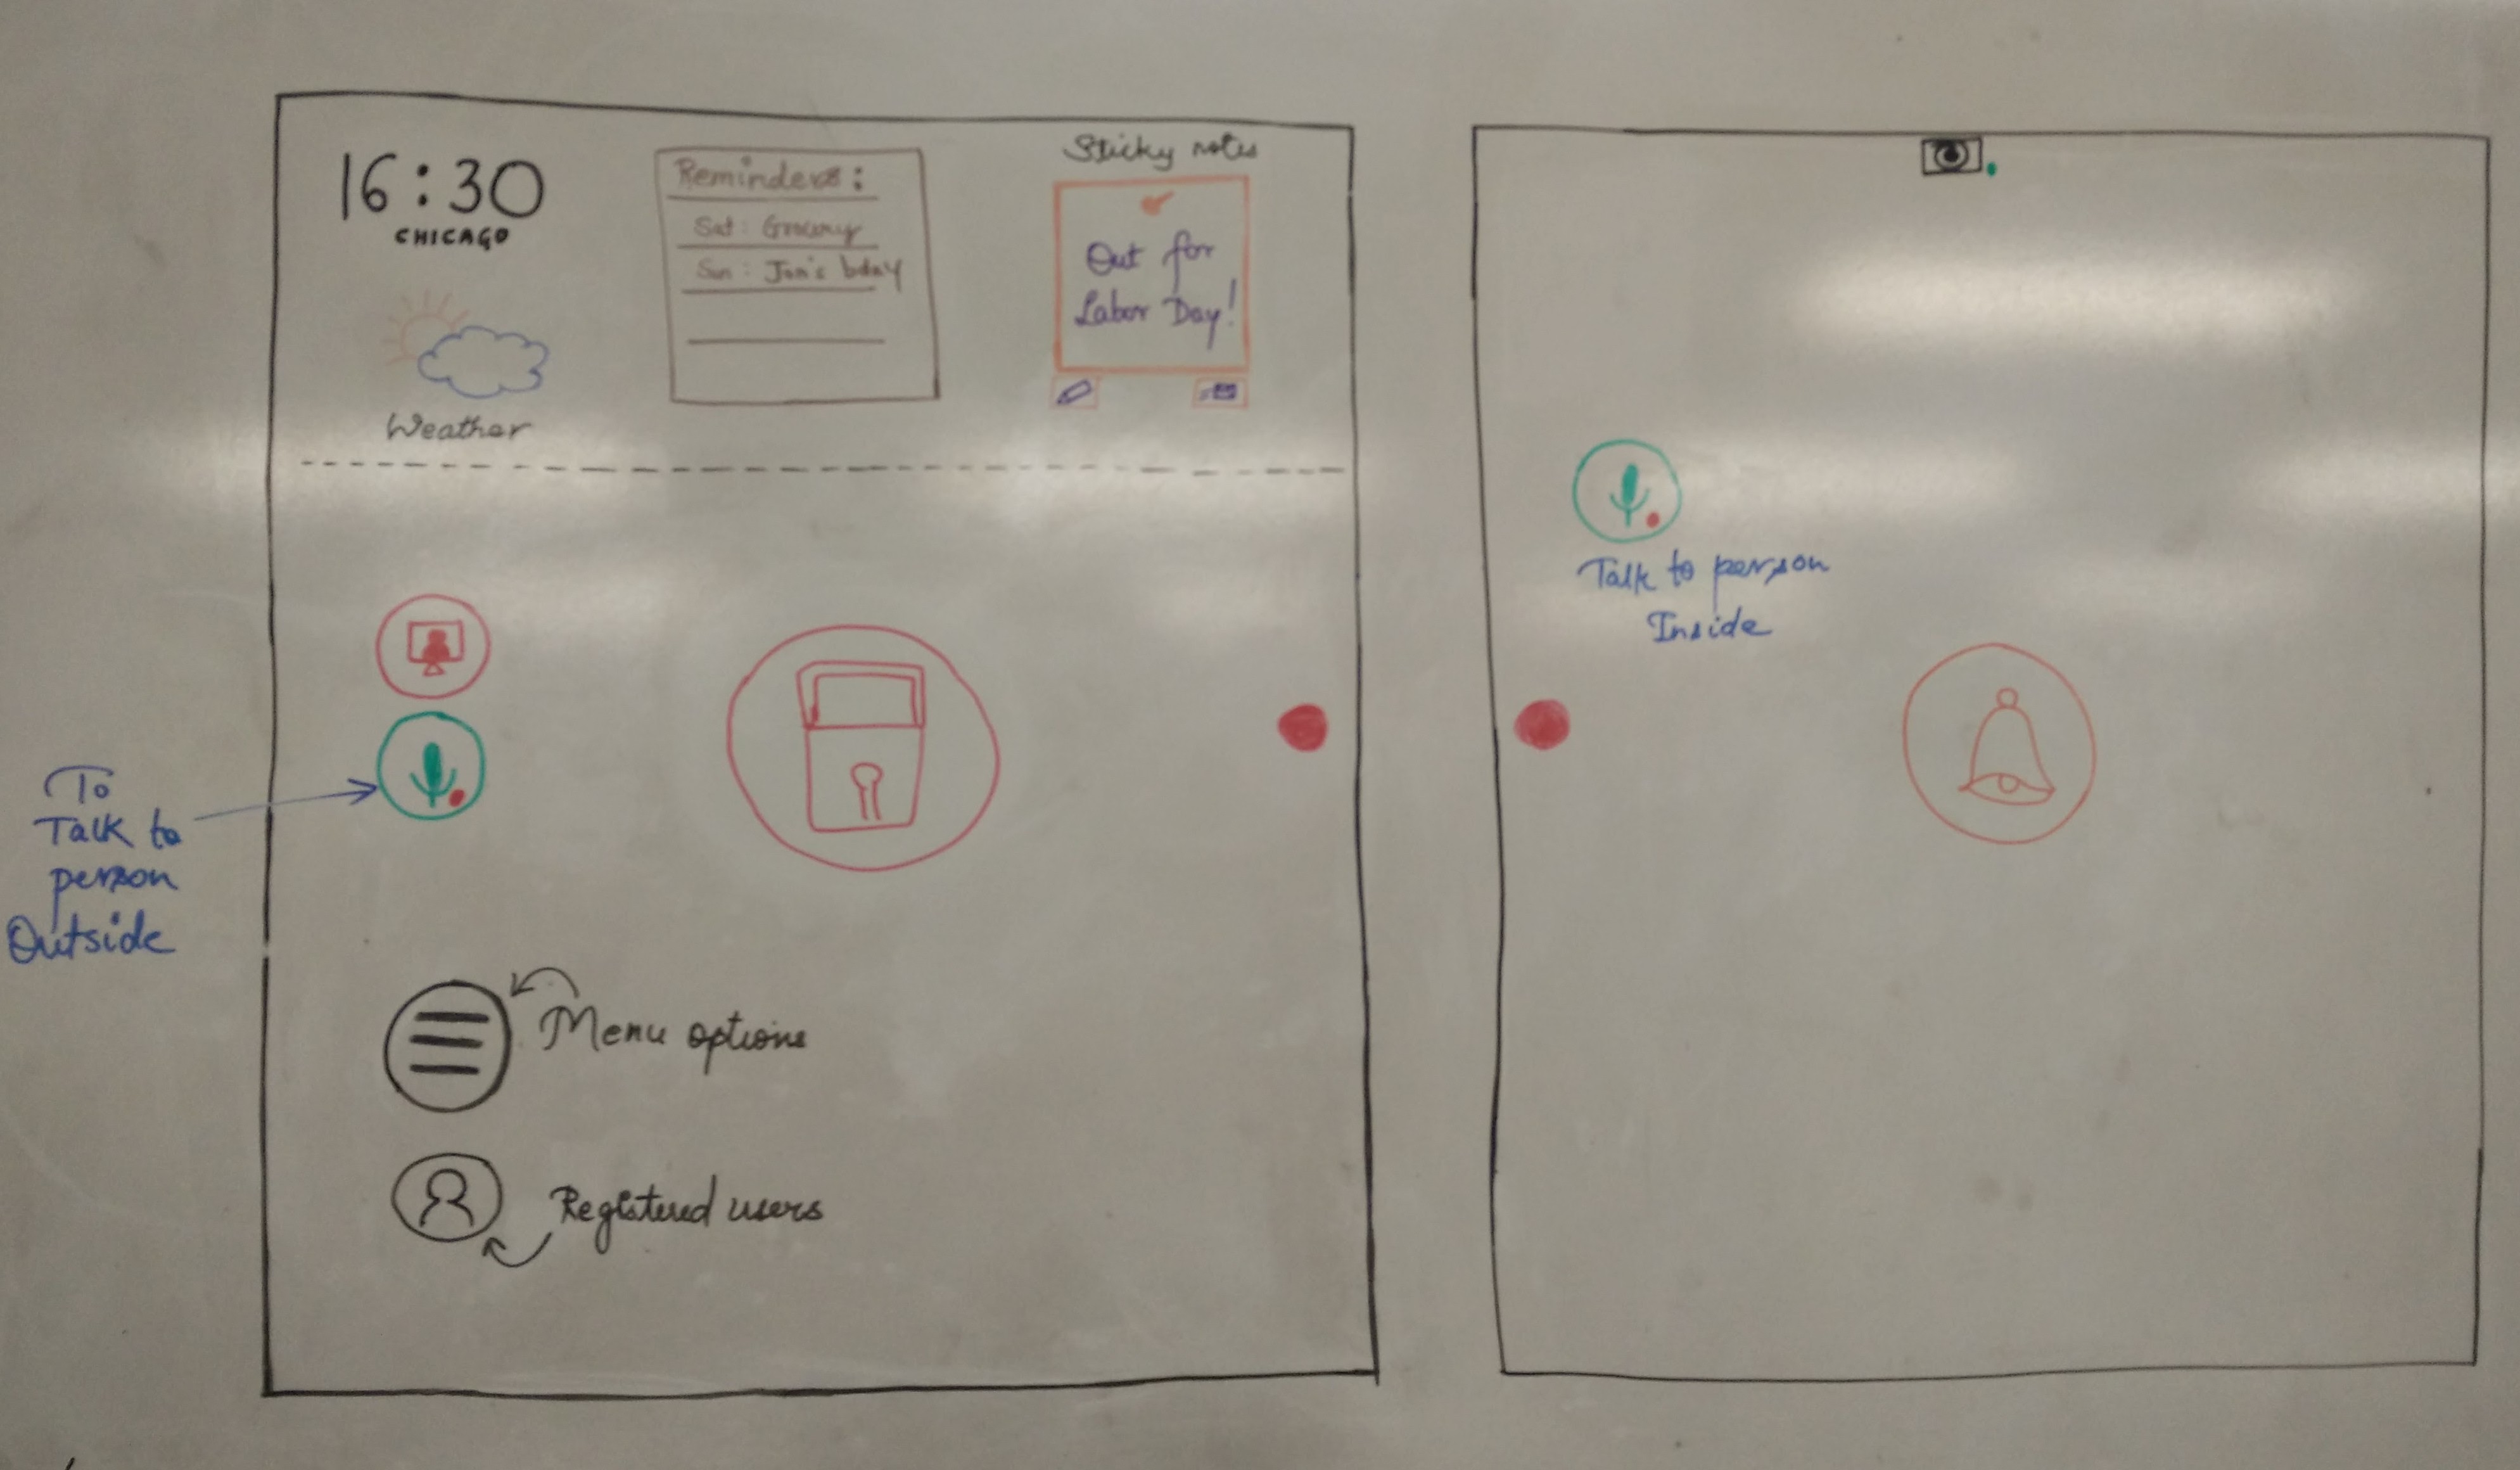 16:30
CHICAGO
Weather
Reminders:
Sat: Grocery
Sun: Jon's bday
Sticky notes
Out for
Labor Day!
To
Talk to
person
Outside
Menu options
Registered users
Talk to person
Inside